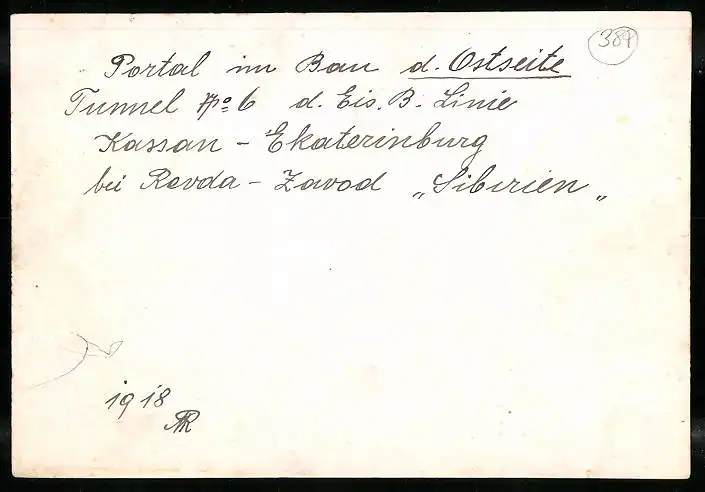 384
Portal im Bau d. Ostseite
Tunnel No 6 d. Eis. B. Linie
Kassan - Ekaterinburg
bei Revda - Zavod „Sibirien„
1918
AR